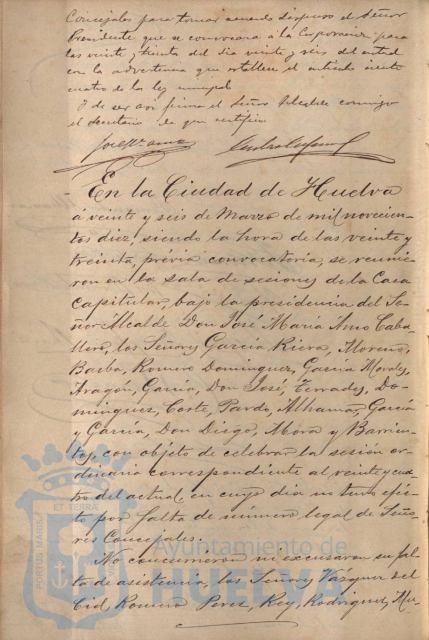 Concejales para tomar acuerdo dispuso el Señor
Presidente que se convocara á la Corporacion para
las veinte y treinta del dia veinte y seis del actual
con la advertencia que establece el artículo ciento
cuatro de la ley municipal
Y de ser asi firma el Señor Alcalde conmigo
el Secretario de que certifico
En la Ciudad de Huelva
á veinte y seis de Marzo de mil novecien-
tos diez, siendo la hora de las veinte y
treinta, prévia convocatoria, se reunie-
ron en la sala de sesiones de la Casa
Capitular, bajo la presidencia del Se-
ñor Alcalde Don José Maria Amo Caba-
llero, los Señores Garcia Riera, Moreno,
Barba, Romero Dominguez, Garcia Morales,
Aragón, Garcia, Don José, Terrades, Do-
minguez, Corte, Pardo, Alhama, Garcia
y Garcia, Don Diego, Mora y Barrien-
tos, con objeto de celebrar la sesión or-
dinaria correspondiente al veinte y cua-
tro del actual, en cuyo dia no tuvo efec-
to por falta de número legal de Seño-
res Concejales.
No concurrieron ni excusaron su fal-
ta de asistencia, los Señores Vázquez del
Cid, Romero Perez, Rey, Rodriguez, Mu-
PORTUS MARIS
ET TERRÆ
Ayuntamiento de
HUELVA